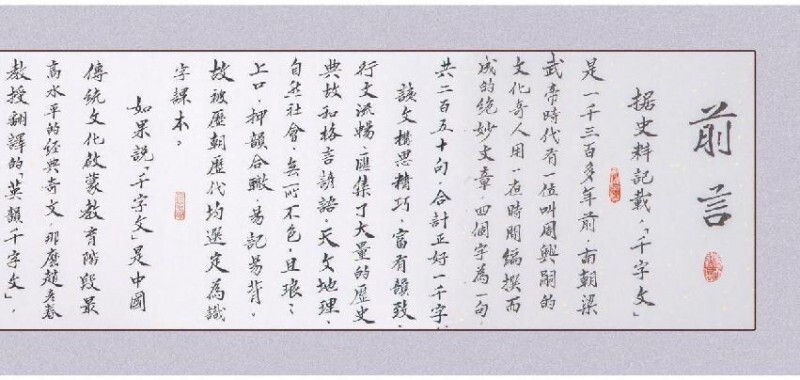 前言
据史料記載,「千字文」
是一千三百多年前,南朝梁
武帝時代有一位叫周興嗣的
文化奇人用一夜時間編撰而
成的絶妙文章,四個字為一句,
共二百五十句,合計正好一千字
該文構思精巧,富有韻致,
行文流暢,匯集了大量的歷史
典故和格言諺語,天文地理,
自然社會,無所不包,且琅々
上口,押韻合轍,易記易背。
故被歷朝歷代均選定為識
字課本。
如果説「千字文」是中國
傳統文化啟蒙教育階段最
高水平的經典奇文,那麼趙彥春
教授翻譯的「英韻千字文」,